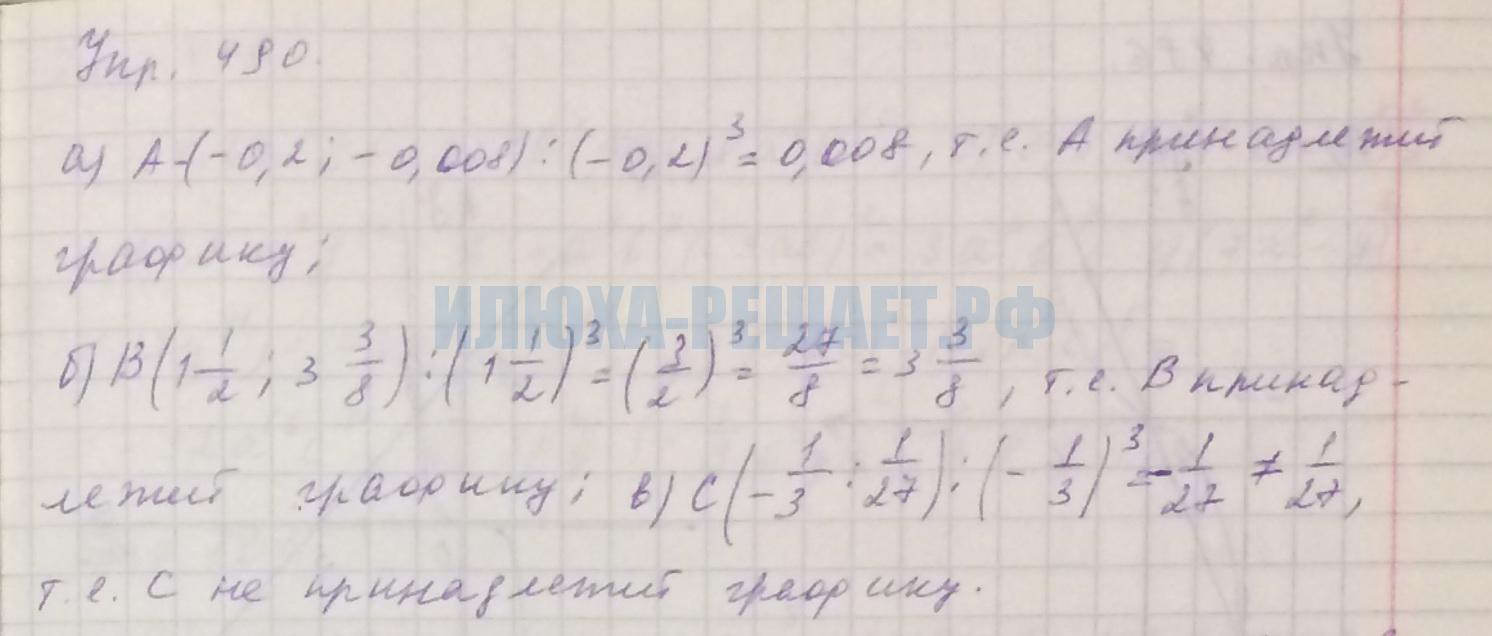 Упр. 490.
а) А-(-0,2; -0,008): (-0,2)³ = 0,008, т.е. А принадлежит
графику;
ИЛЮХА-РЕШАЕТ.РФ
б) В(1 1/2; 3 3/8): (1 1/2)³ = (3/2)³ = 27/8 = 3 3/8, т.е. В принад-
лежит графику; в) С(-1/3: 1/27): (-1/3)³ = -1/27 ≠ 1/27,
т.е. С не принадлежит графику.